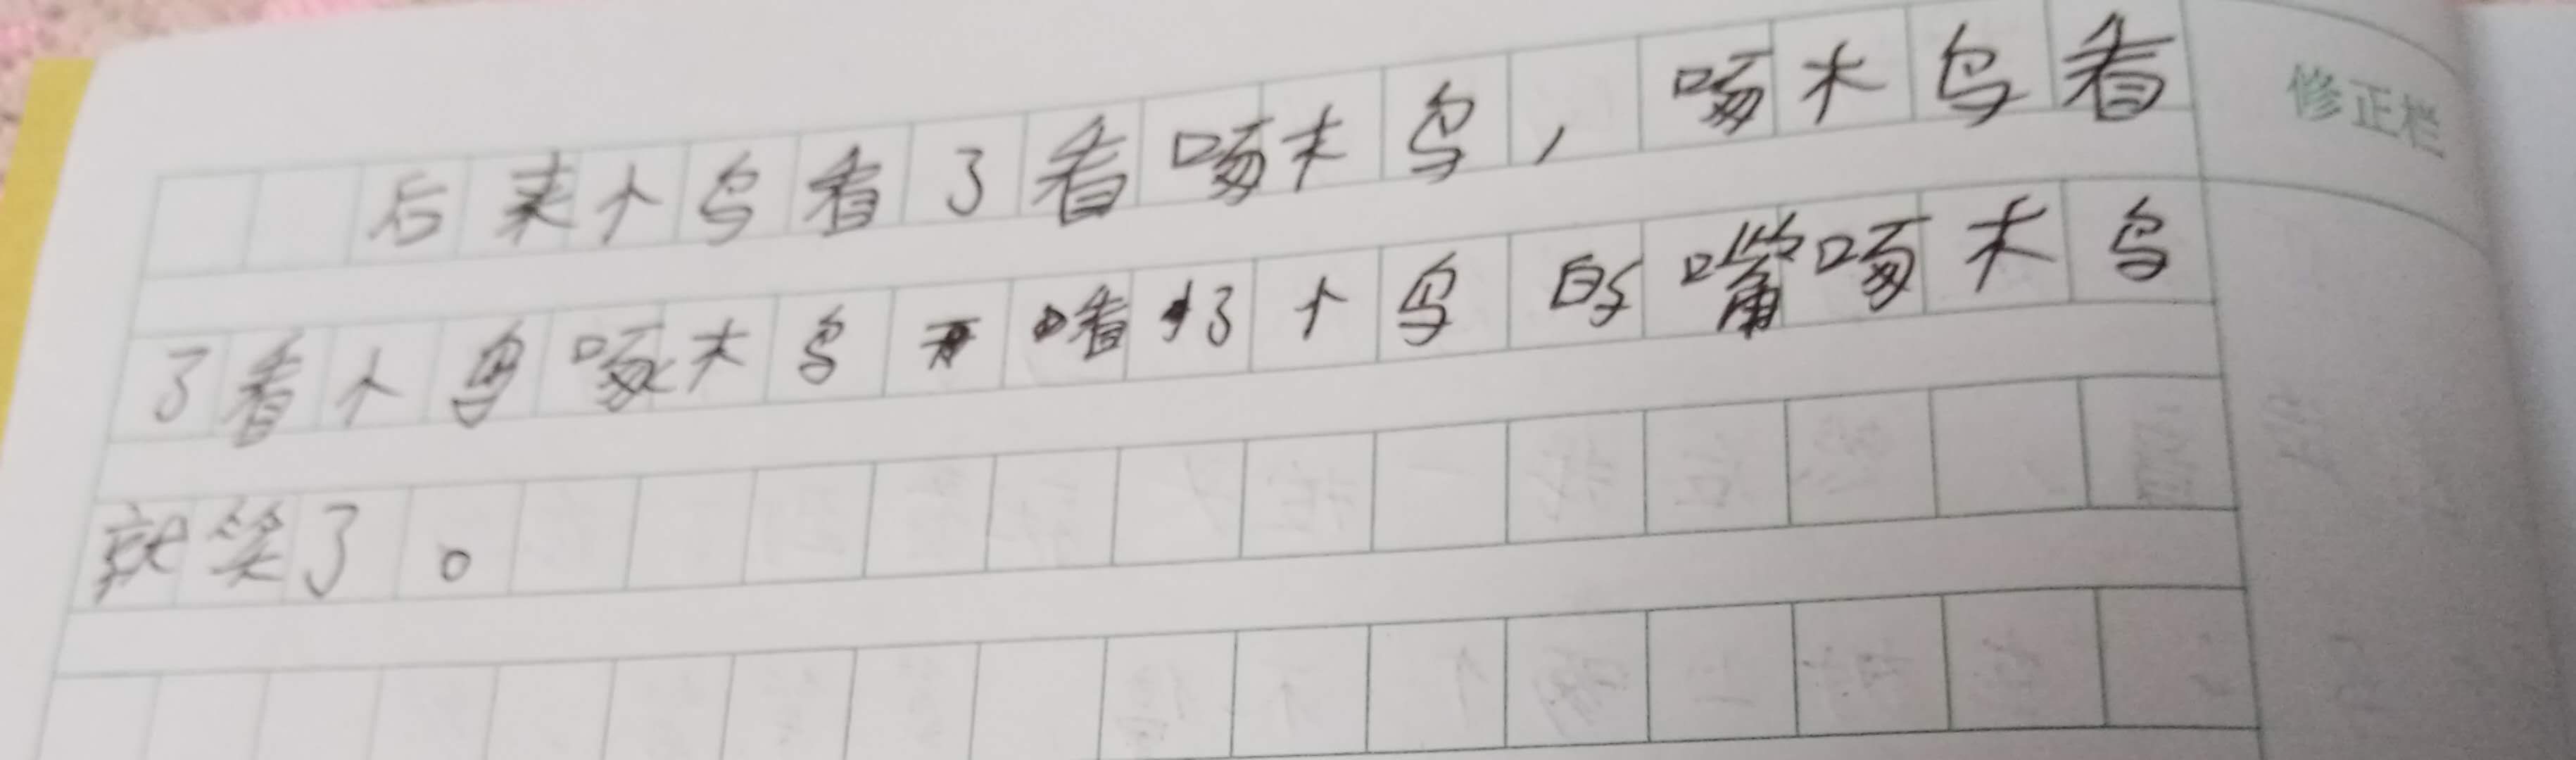 后来个鸟看了看啄木鸟，啄木鸟看
修正栏
了看个鸟啄木鸟看了个鸟的嘴啄木鸟
就笑了。